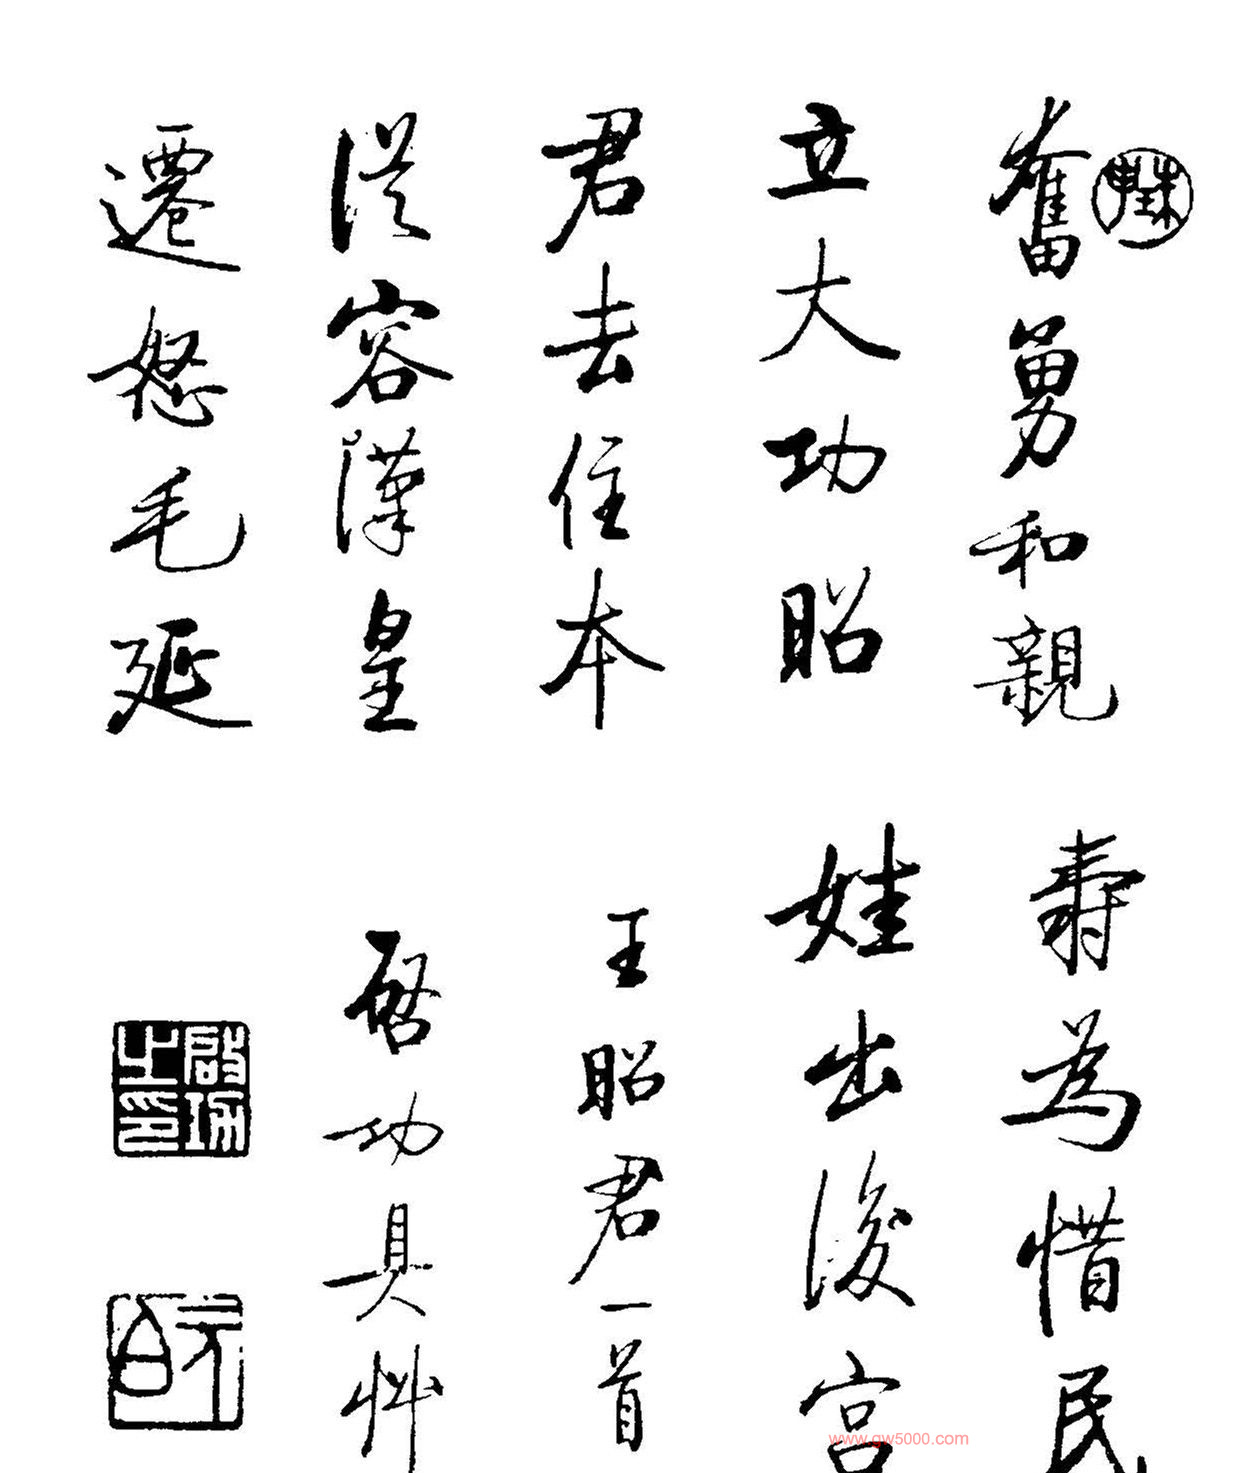 珠申
奮勇和親
立大功昭
君去住本
從容漢皇
遷怒毛延
壽為惜民
娃出後宮
王昭君一首
啓功具艸
啓功之印
元白
www.gw5000.com